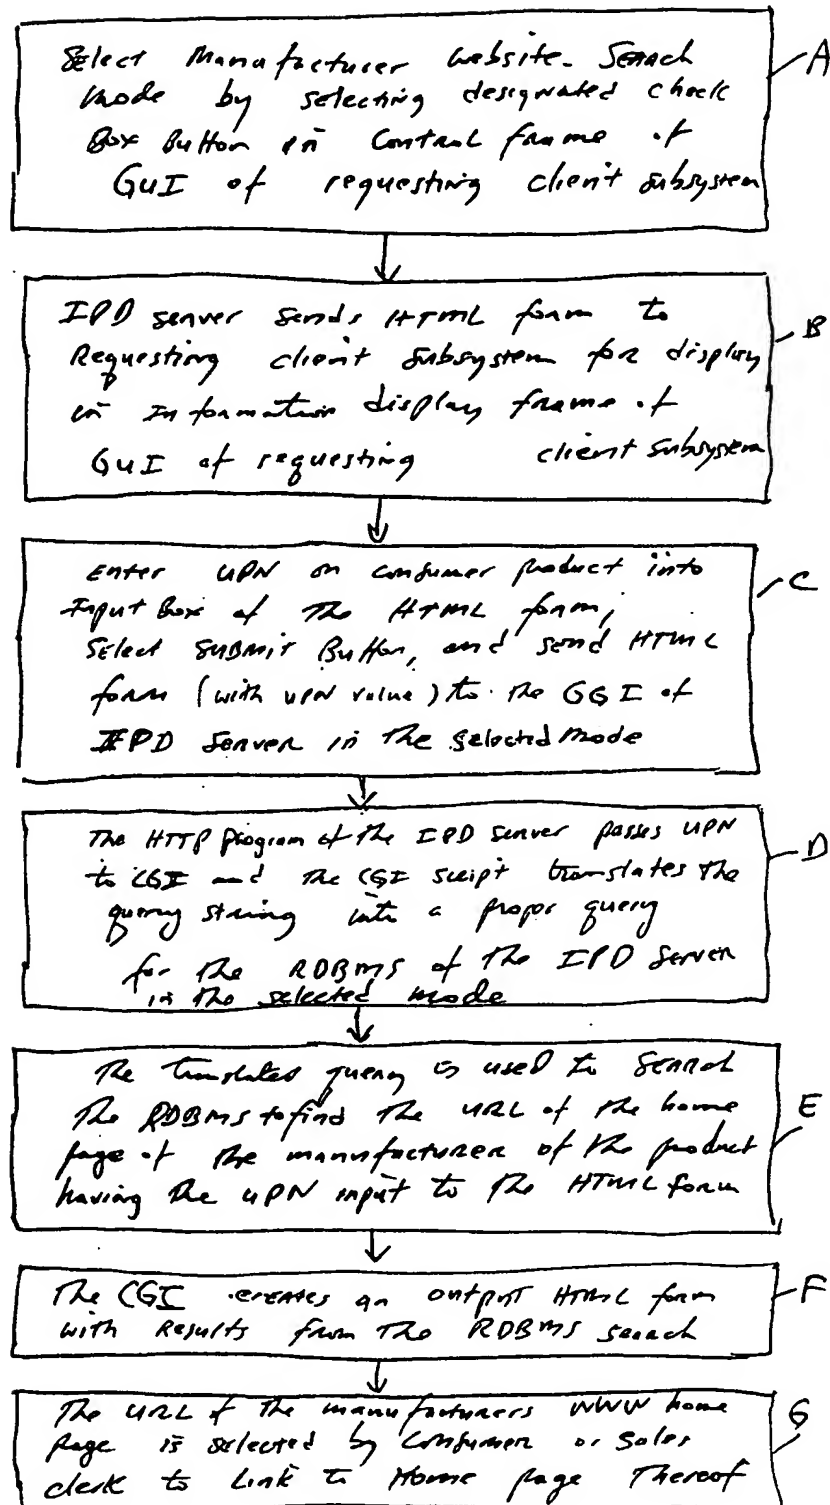 Select Manufacturer Website Search
Mode by selecting designated check
Box Button in Control frame of
GUI of requesting client subsystem
A
IPD server sends HTML form to
Requesting client subsystem for display
in Information display frame of
GUI of requesting client subsystem
B
Enter UPN on consumer product into
Input Box of the HTML form,
Select SUBMIT Button, and send HTML
form (with UPN value) to the GGI of
IPD Server in the selected Mode
C
The HTTP program of the IPD server passes UPN
to CGI and the CGI script translates the
query string into a proper query
for the RDBMS of the IPD Server
in the selected mode
D
The translated query is used to Search
The RDBMS to find the URL of the home
page of the manufacturer of the product
having the UPN input to the HTML form
E
The CGI creates an output HTML form
with Results from the RDBMS search
F
The URL of the manufacturers WWW home
Page is selected by Consumer or Sales
clerk to Link to Home page Thereof
G